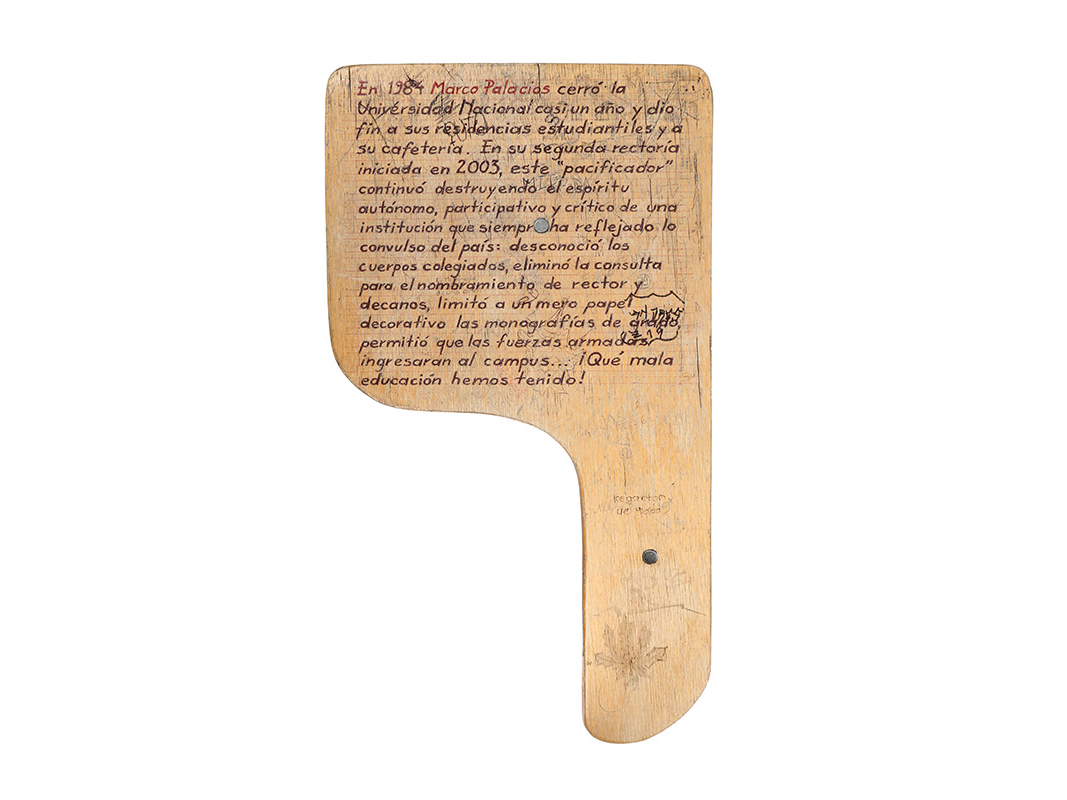 En 1984 Marco Palacios cerró la
Universidad Nacional casi un año y dio
fin a sus residencias estudiantiles y a
su cafetería. En su segunda rectoría
iniciada en 2003, este "pacificador"
continuó destruyendo el espíritu
autónomo, participativo y crítico de una
institución que siempr ha reflejado lo
convulso del país: desconoció los
cuerpos colegiados, eliminó la consulta
para el nombramiento de rector y
decanos, limitó a un mero papel
decorativo las monografías de grado,
permitió que las fuerzas armadas
ingresaran al campus... ¡Qué mala
educación hemos tenido!